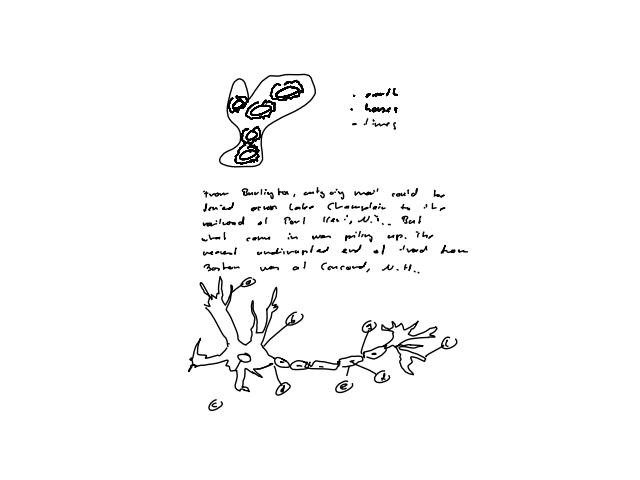 • earth
• horses
- times
From Burlington, outgoing mail could be
ferried across Lake Champlain to the
railroad at Port Kent, N.Y.. But
what came in was piling up. The
nearest undisrupted end of track from
Boston was at Concord, N.H..
a
b
a
c
d
e
d
c